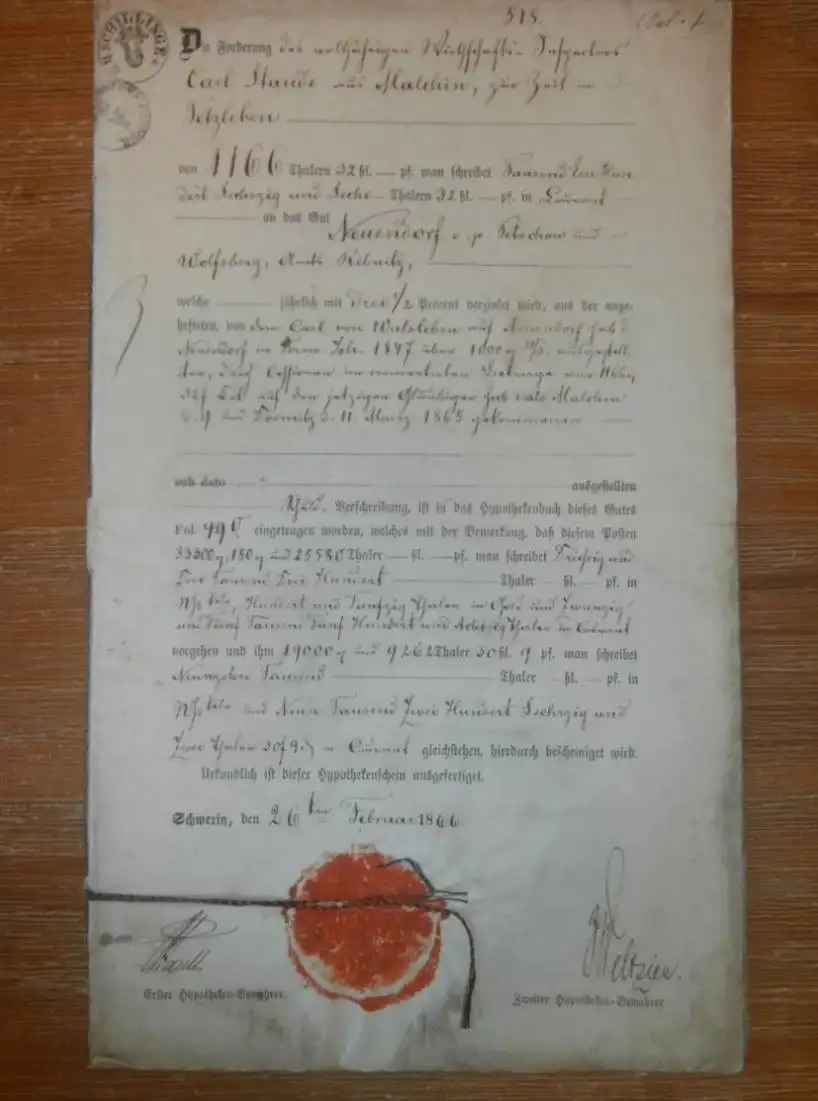 518.
SCHILLINGE
Die Forderung des volljährigen Wirthschafts-Inspectors
Carl Staude aus Malchin, zur Zeit in
Tetzleben
von 1166 Thalern 32 ßl. — pf. man schreibet Tausend Ein Hun
dert Sechszig und Sechs Thalern 32 ßl. — pf. in Courant
an das Gut
Neuendorf c. p. und
Wolfsberg, Amts Ribnitz,
welche jährlich mit drei 1/2 Procent verzinset wird, aus der ange-
hefteten, von dem Carl von Walsleben auf Neuendorf sub d.
Neuendorf in Term. Joh. 1847 über 1000 ausgestell
ten, durch Cessionen im von 1166
auf den jetzigen Gläubiger sub dato Malchin
und d. 11. März 1865 gekommenen
sub dato ausgestellten
Schuld-Verschreibung, ist in das Hypothekenbuch dieses Gutes
Fol. 49 eingetragen worden, welches mit der Bemerkung, daß diesem Posten
33300, 150 und 25580 Thaler — ßl. — pf. man schreibet Dreißig und
Drei Tausend Drei Hundert Thaler — ßl. — pf. in
Hundert und Funfzig Thaler in Gold und Zwanzig
und Fünf Tausend Fünf Hundert und Achtzig Thaler in Courant
vorgehen und ihm 19000 und 9262 Thaler 30 ßl. 9 pf. man schreibet
Neunzehn Tausend Thaler — ßl. — pf. in
und Neun Tausend Zwei Hundert Sechszig und
Zwei Thaler 30 ßl 9 in Courant gleichstehen, hierdurch bescheiniget wird.
Urkundlich ist dieser Hypothekenschein ausgefertiget.
Schwerin, den 26ten Februar 1866
Weltzien.
Erster Hypotheken-Bewahrer.
Zweiter Hypotheken-Bewahrer